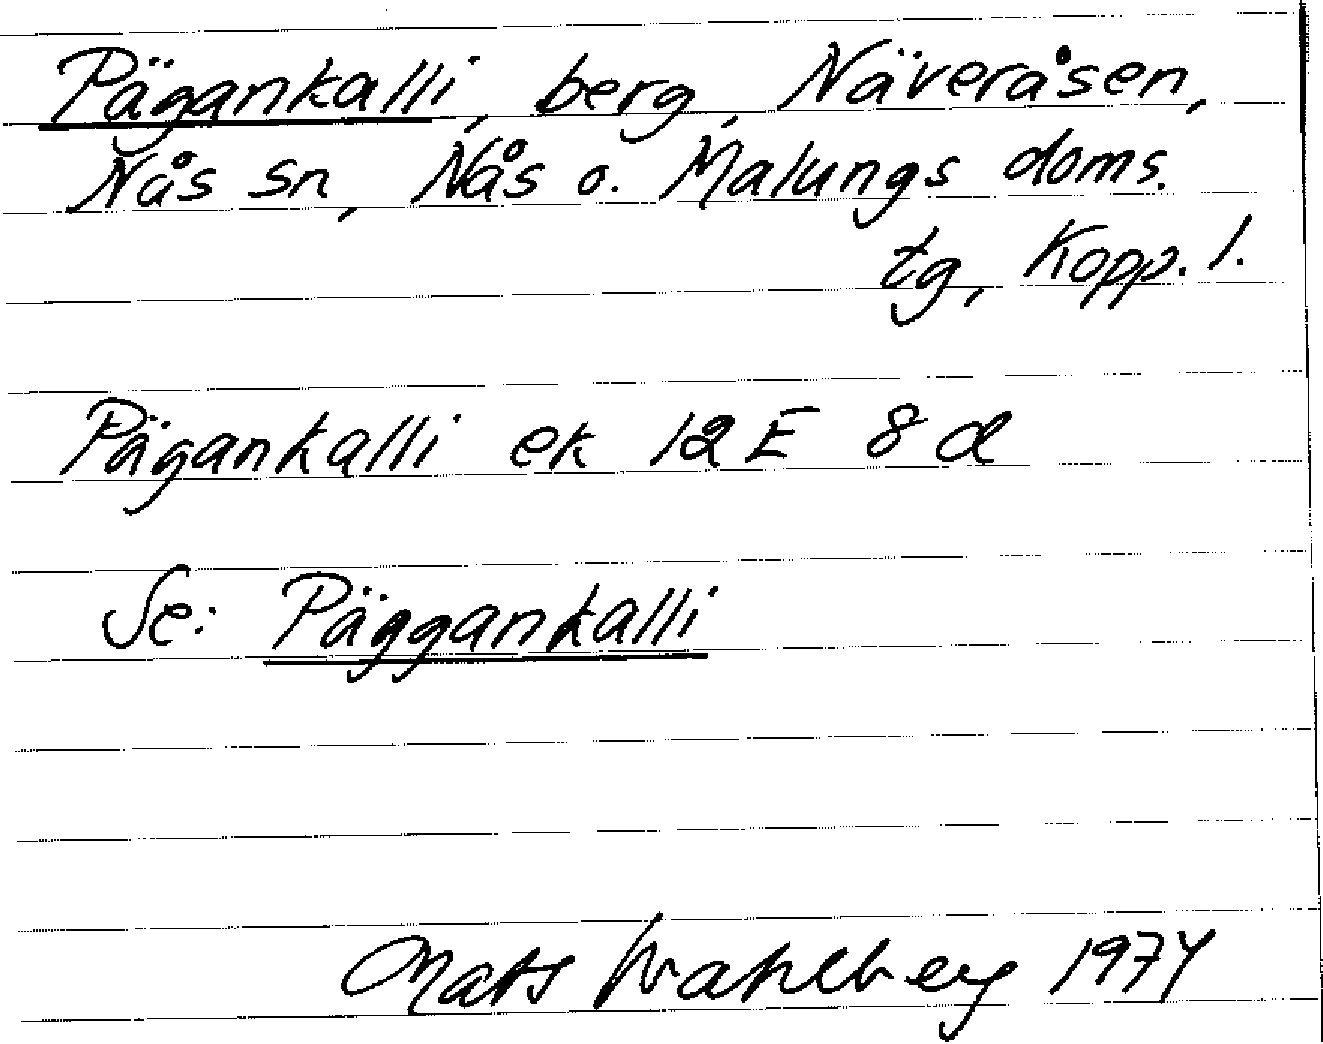 Pägankalli, berg, Näveråsen,
Nås sn, Nås o. Malungs doms.
tg, Kopp. l.
Pägankalli ek 12 E 8 d
Se: Päggankalli
Mats Wahlberg 1974